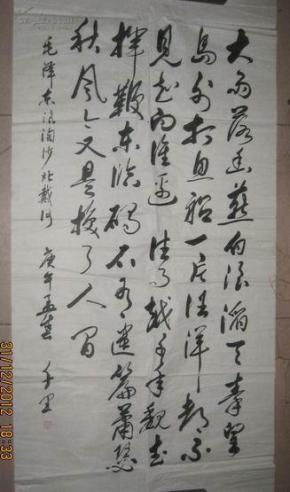 大雨落幽燕白浪滔天秦皇
岛外打鱼船一片汪洋都不
见知向谁边往事越千年魏武
挥鞭东临碣石有遗篇萧瑟
秋风今又是换了人间
毛泽东浪淘沙北戴河 庚午孟 千里
31/12/2012 18:33